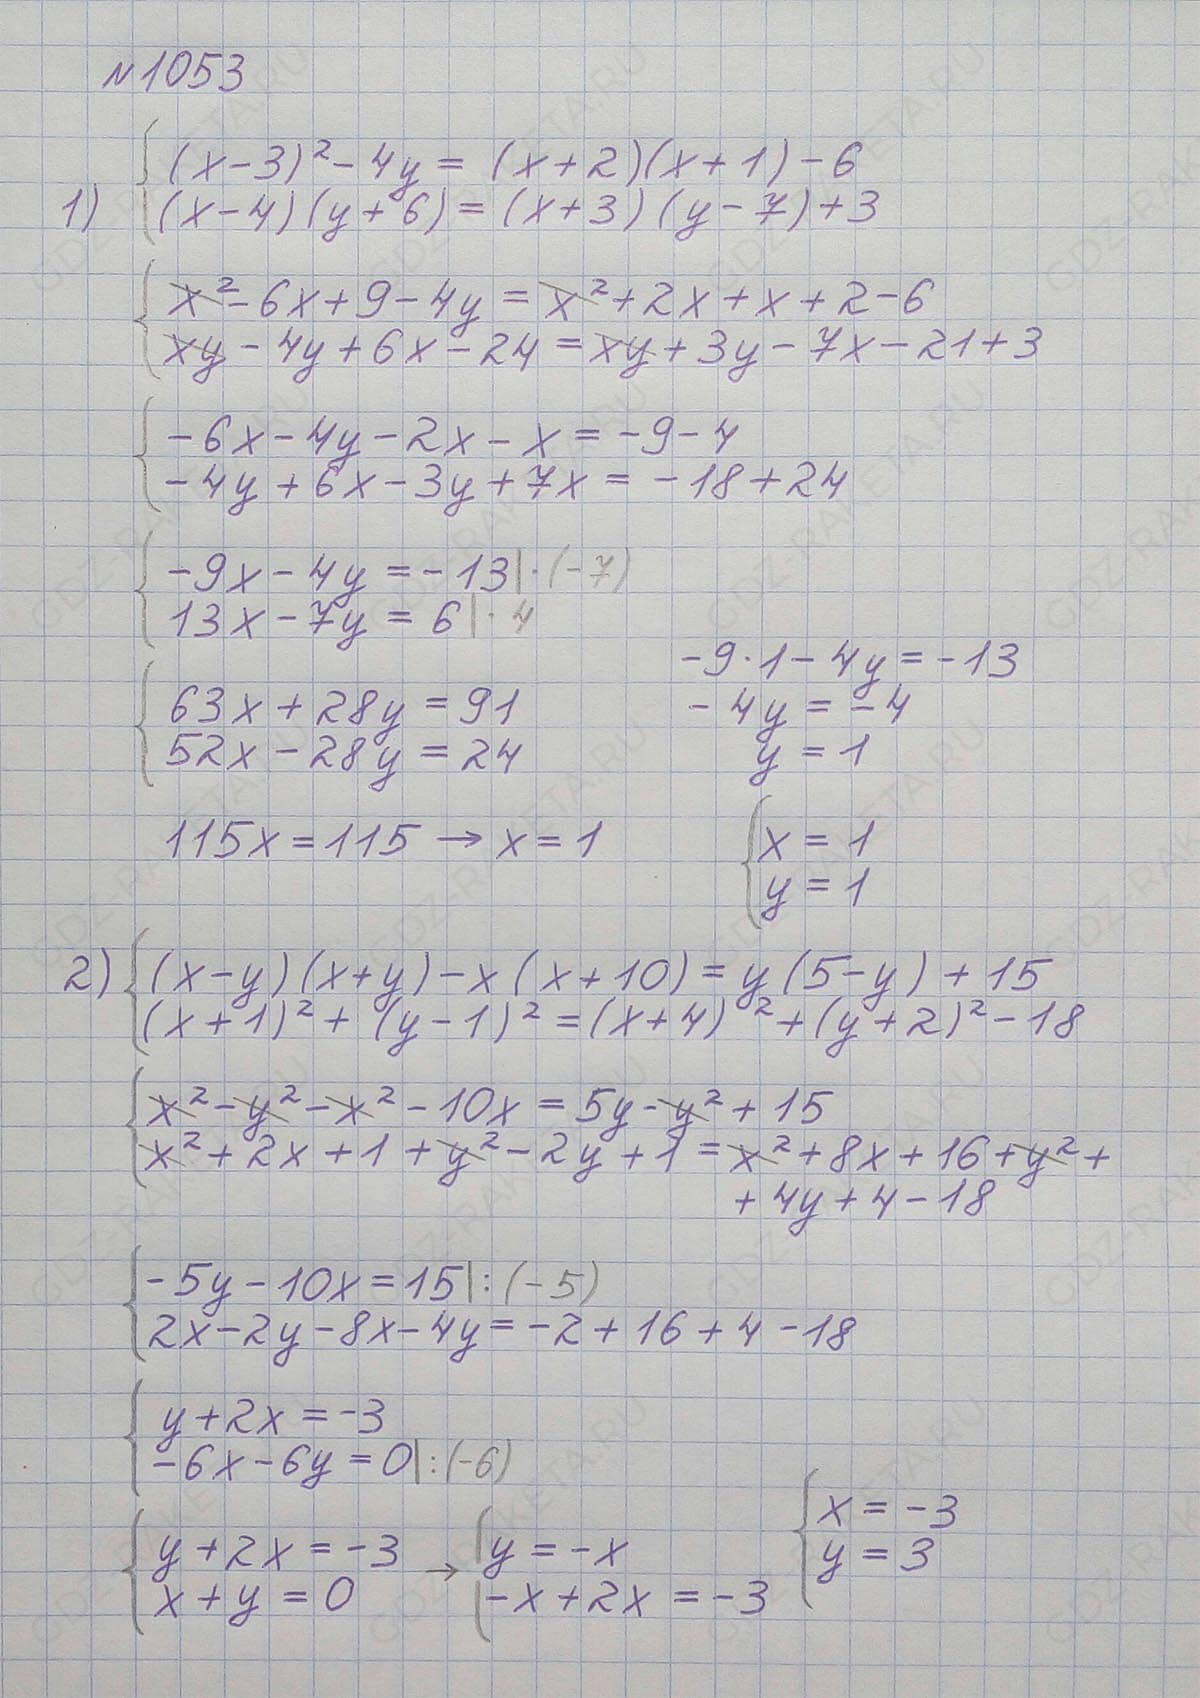 №1053
1) (x-3)² - 4y = (x+2)(x+1) - 6
(x-4)(y+6) = (x+3)(y-7)+3
x² - 6x + 9 - 4y = x² + 2x + x + 2 - 6
xy - 4y + 6x - 24 = xy + 3y - 7x - 21 + 3
-6x - 4y - 2x - x = -9 - 4
-4y + 6x - 3y + 7x = -18 + 24
-9x - 4y = -13 |·(-7)
13x - 7y = 6 |· 4
63x + 28y = 91
52x - 28y = 24
115x = 115 → x = 1
-9·1 - 4y = -13
-4y = -4
y = 1
x = 1
y = 1
2) (x-y)(x+y) - x(x+10) = y(5-y) + 15
(x+1)² + (y-1)² = (x+4)² + (y+2)² - 18
x² - y² - x² - 10x = 5y - y² + 15
x² + 2x + 1 + y² - 2y + 1 = x² + 8x + 16 + y² +
+ 4y + 4 - 18
-5y - 10x = 15 |:(-5)
2x - 2y - 8x - 4y = -2 + 16 + 4 - 18
y + 2x = -3
-6x - 6y = 0 |:(-6)
y + 2x = -3
x + y = 0
→ y = -x
-x + 2x = -3
x = -3
y = 3
GDZ-RAKETA.RU